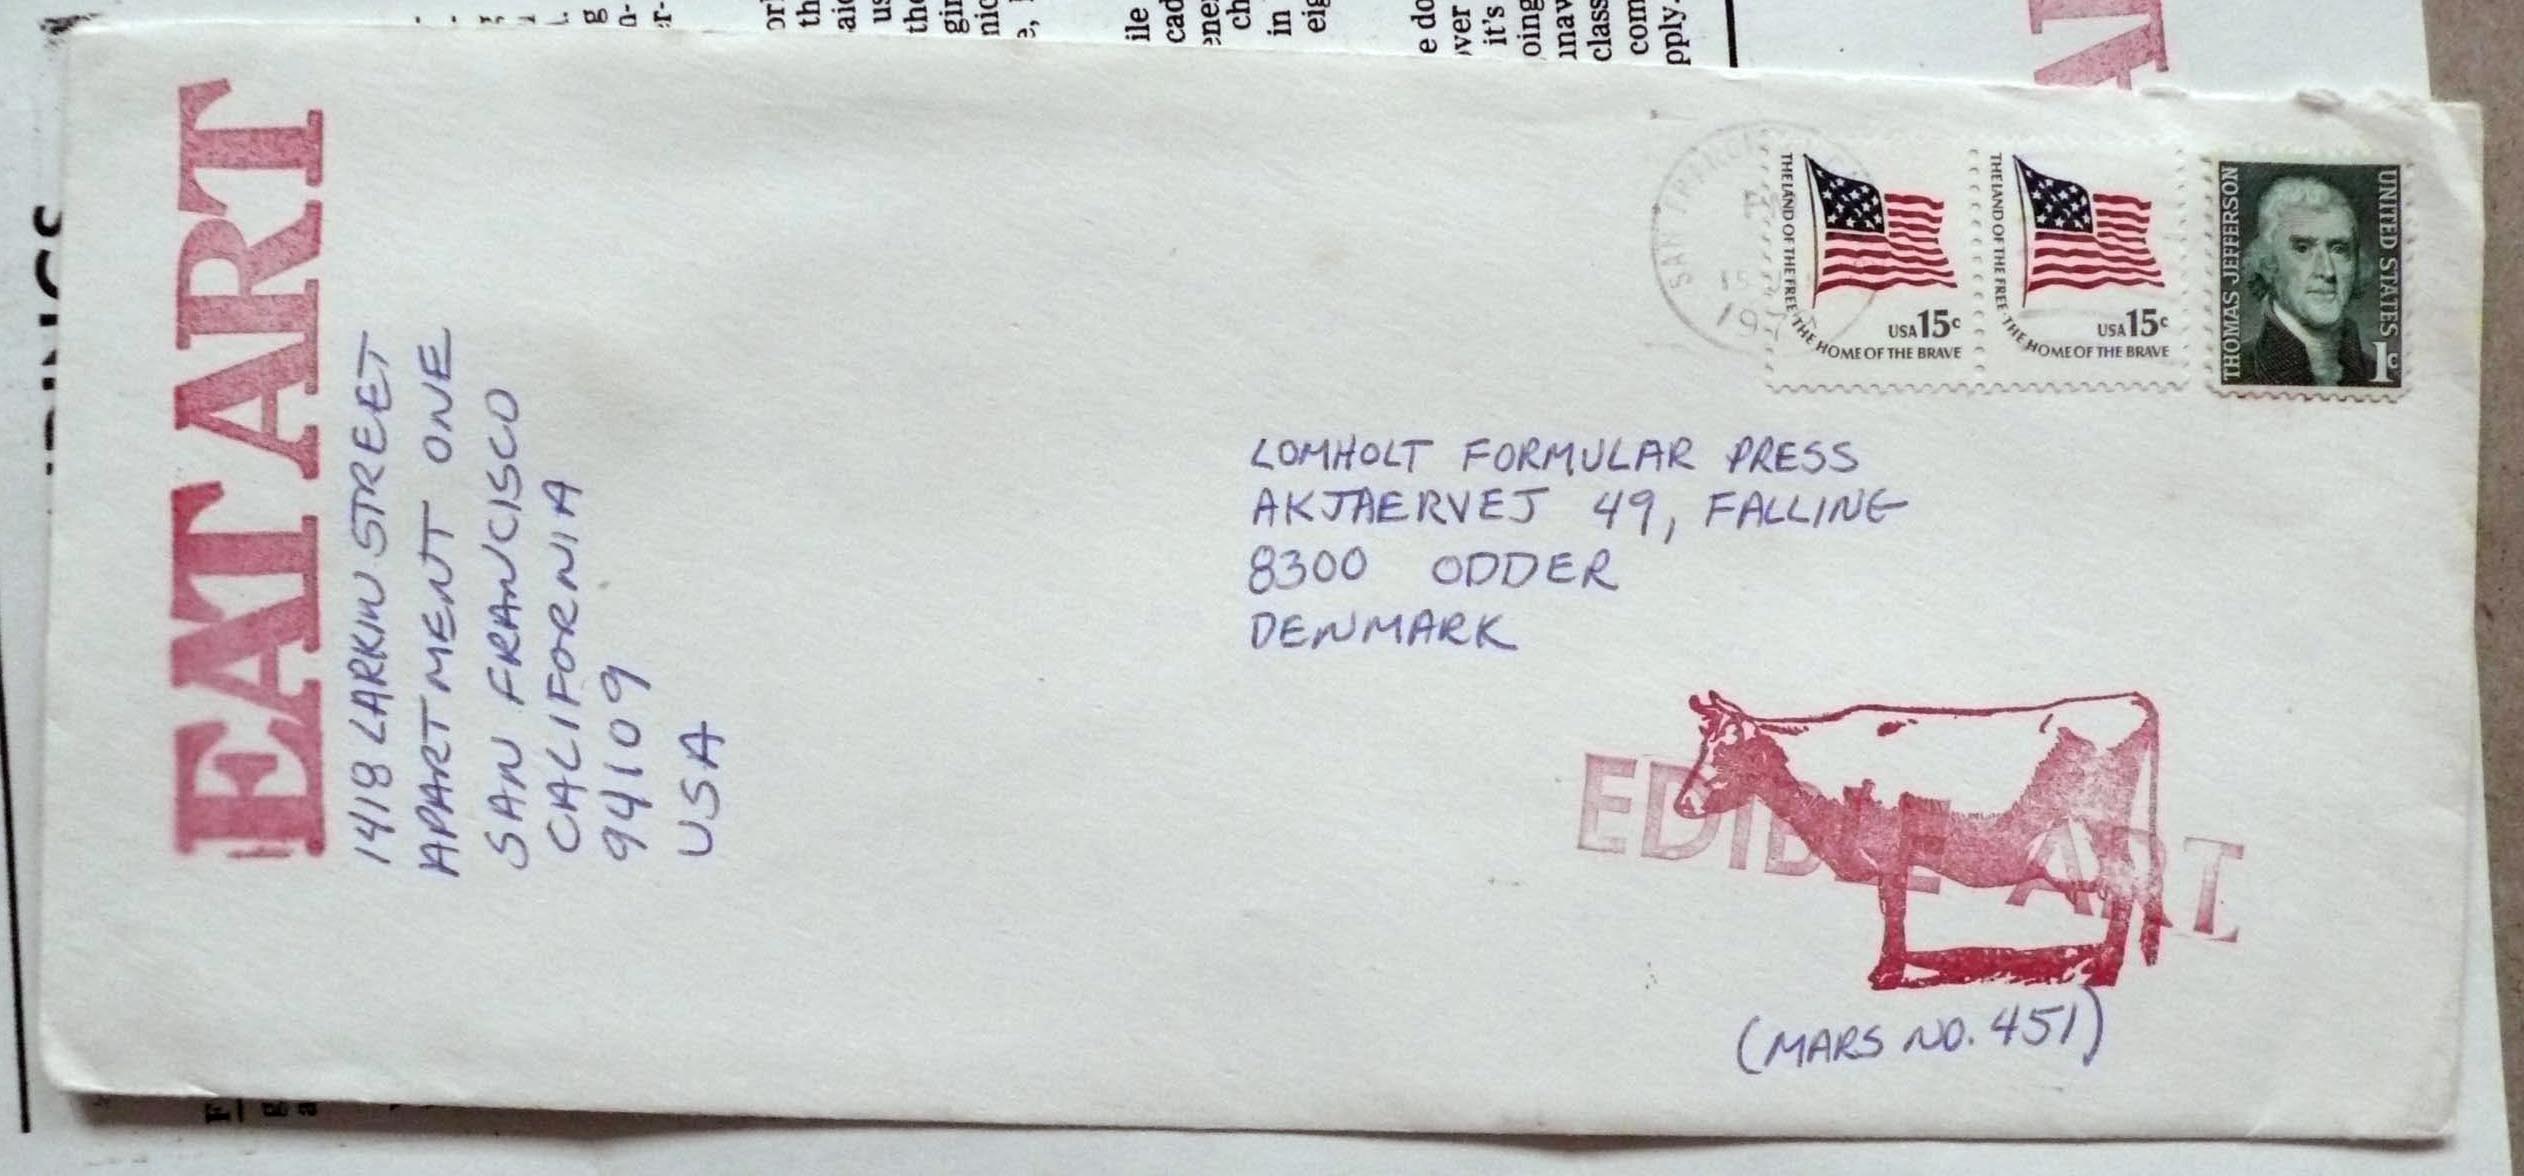 EAT ART
1418 LARKIN STREET
APARTMENT ONE
SAN FRANCISCO
CALIFORNIA
94109
USA
SAN
15
19
THE LAND OF THE FREE THE HOME OF THE BRAVE
USA 15c
THE LAND OF THE FREE THE HOME OF THE BRAVE
USA 15c
THOMAS JEFFERSON
UNITED STATES
1c
LOMHOLT FORMULAR PRESS
AKJAERVEJ 49, FALLING
8300 ODDER
DENMARK
EDIBLE ART
(MARS NO. 451)
it's
in
class